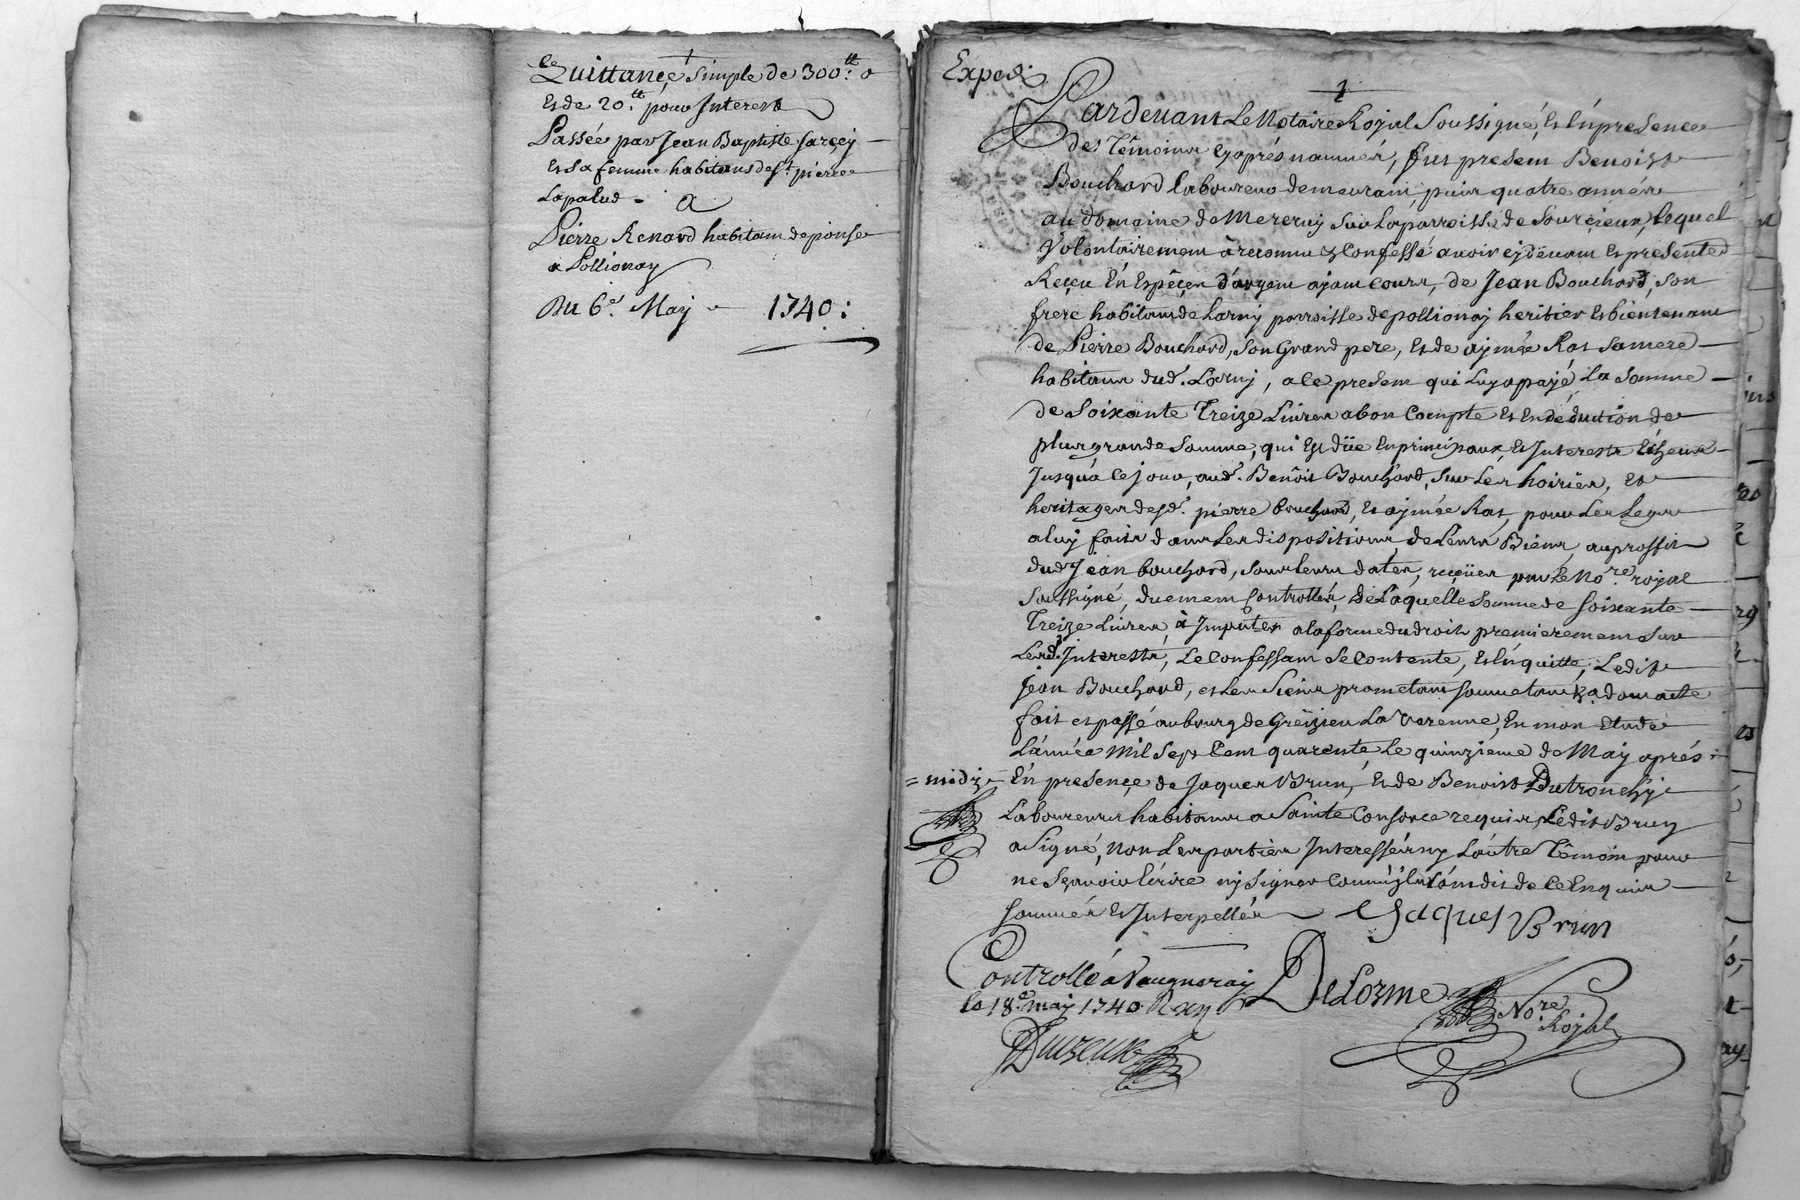 Quittance simple de 300.tt
Et de 20.tt pour Interest
Passée par Jean Baptiste Sarçey
Et Sa femme habitans de St pierre
Lapalud - A
Pierre Renard habitant de
a Pollionay
Du 6e. May 1740 :
Exped.
Pardevant Le Notaire Royal Soussigné, Et En presence
des Témoins cyaprés nommés, fut present Benoist
Bouchard laboureur demeurant, puis quatre années
au domaine de Mereruy Sur La parroisse de Sourcieux, Lequel
Volontairement à reconnu & Confessé avoir cy devant Et presentement
Reçeu En Espéçes d'argent ayant cours, de Jean Bouchard, son
frere habitant de Larny parroisse de pollionay heritier Et bientenant
de Pierre Bouchard, Son Grand pere, Et de aymée Ras Sa mere
habitans dud. Larny, a ce present qui Luy a payé, La Somme
de Soixante Treize Livres a bon Compte Et En deduction de
plus grande Somme, qui Est düe En principaux, Et Interests Echeus
Jusqu'à ce jour, aud. Benoit Bouchard, Sur Les hoiries, Et
heritages desd. pierre bouchard, Et aymée Ras, pour Les Legats
a luy faits dans Les dispositions de Leurs Biens, au proffit
dud. Jean bouchard, sous leurs dates, reçües par Le No.re royal
Soussigné, duement Controllés, de Laquelle Somme de Soixante
Treize Livres, à Imputer a la forme du droit premierement Sur
Lesd. Interests, Le Confessant Se Contente, Et En quitte, Ledit
Jean Bouchard, et Les Siens promettant soumettant &a dont acte
fait et passé au bourg de Greizieu La Varenne, En mon Etude
L'année mil Sept Cent quarente, Le quinzieme de May aprés
= midi = En presence de Jaques Brun, Et de Benoist Dutronchy
Laboureurs habitans a Sainte Consorce requis, Ledit Brun
a Signé, non Les parties Interessées ny L'autre Témoin pour
ne Sçavoir Ecrire ny Signer Comme ils L'ont dit de Ce Enquis
Sommés Et Interpellés Jaques Brun
Controllé a Vaugneray
le 18e. may 1740. DeLorme No.re
Royal